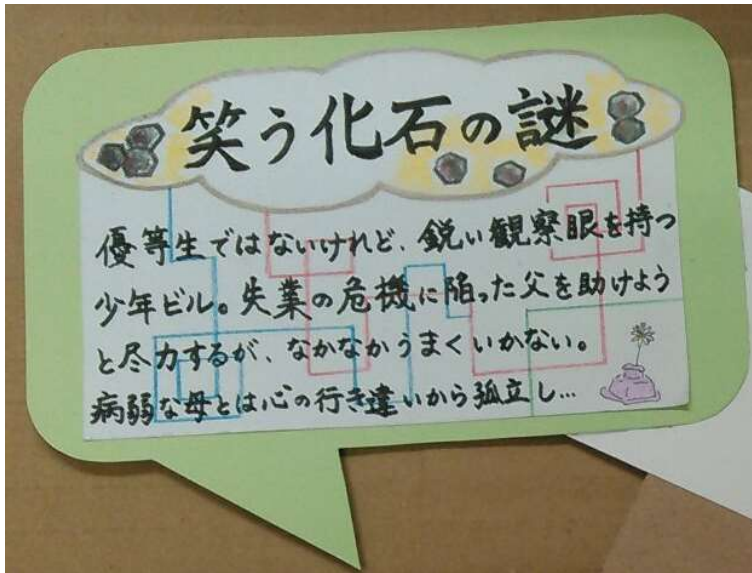 笑う化石の謎
優等生ではないけれど、鋭い観察眼を持つ
少年ビル。失業の危機に陥った父を助けよう
と尽力するが、なかなかうまくいかない。
病弱な母とは心の行き違いから孤立し…